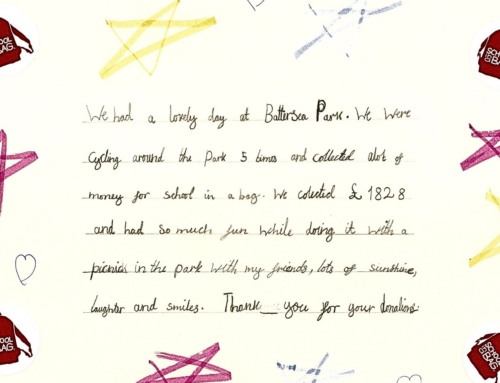 We had a lovely day at Battersea Park. We were
cycling around the Park 5 times and collected alot of
money for school in a bag. We colected £ 1828
and had so much fun while doing it with a
picnic in the park with my friends, lots of sunshine,
laughter and smiles. Thank you for your donations
SCHOOL
IN A
BAG.